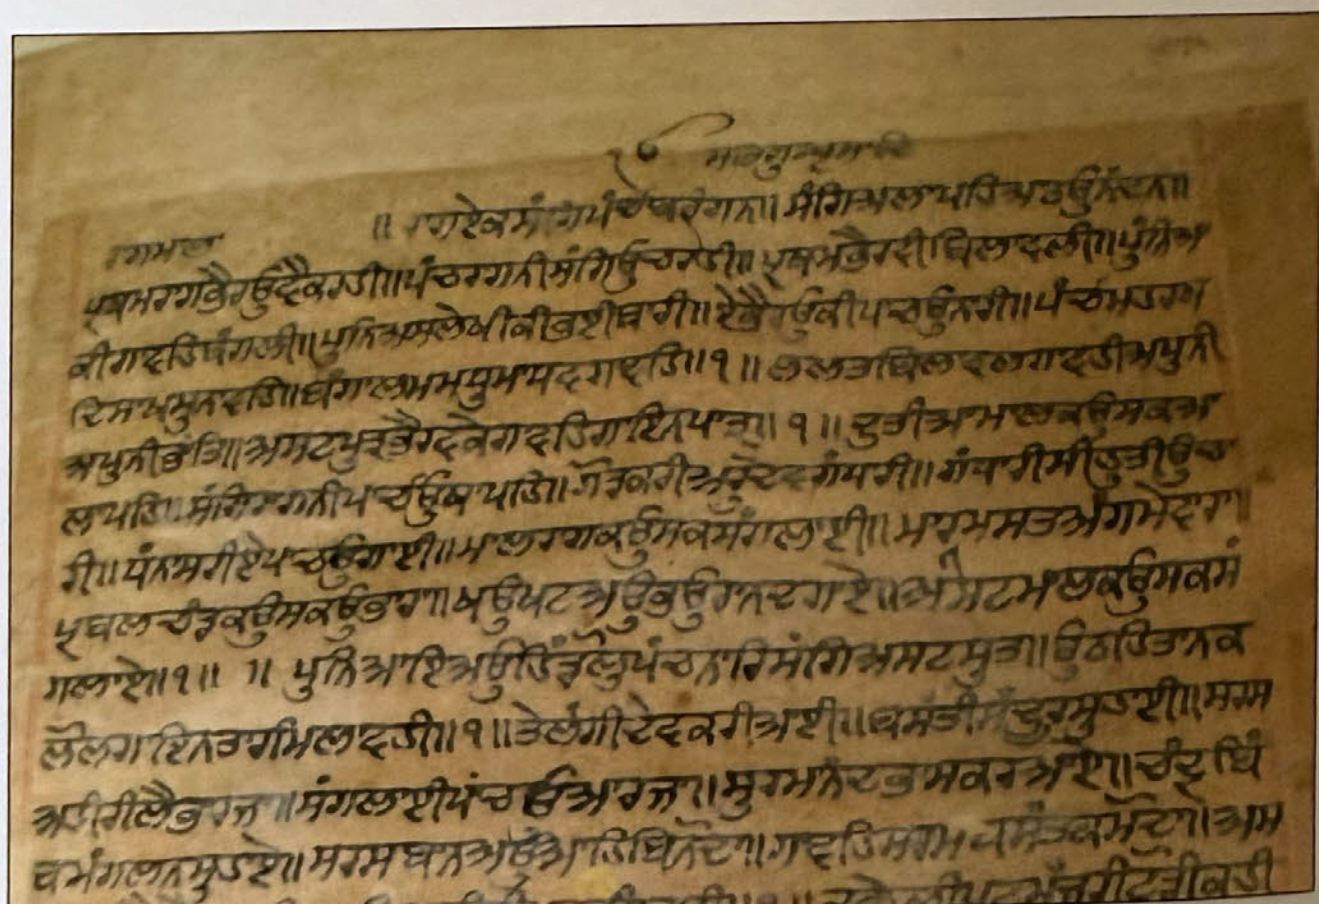 ੴ ਸਤਿਗੁਰਪ੍ਰਸਾਦਿ
ਰਾਗਮਾਲਾ ॥ ਰਾਗਏਕਸੰਗਿਪੰਚਬਰੰਗਨ॥ ਸੰਗਿਅਲਾਪਹਿਆਠਉਨੰਦਨ॥
ਪ੍ਰਥਮਰਾਗਭੈਰਉਵੈਕਰਹੀ॥ਪੰਚਰਾਗਨੀਸੰਗਿਉਚਰਹੀ॥ਪ੍ਰਥਮਭੈਰਵੀਬਿਲਾਵਲੀ॥ਪੁੰਨਿਆ
ਕੀਗਾਵਹਿਬੰਗਲੀ॥ਪੁਨਿਅਸਲੇਖੀਕੀਭਈਬਾਰੀ॥ਏਭੈਰਉਕੀਪਾਚਉਨਾਰੀ॥ਪੰਚਮਹਰਖ
ਦਿਸਾਖਸੁਨਾਵਹਿ॥ਬੰਗਾਲਮਮਧੁਮਾਧਵਗਾਵਹਿ॥੧॥ਲਲਤਬਿਲਾਵਲਗਾਵਹੀਅਪੁਨੀ
ਅਪੁਨੀਭਾਂਤਿ॥ਅਸਟਪੁਤ੍ਰਭੈਰਵਕੇਗਾਵਹਿਗਾਇਨਪਾਤ੍ਰ॥੧॥ਦੁਤੀਆਮਾਲਕਉਸਕਆ
ਲਾਪਹਿ॥ਸੰਗਿਰਾਗਨੀਪਾਚਉਥਾਪਹਿ॥ਗੋਡਕਰੀਅਰੁਦੇਵਗੰਧਾਰੀ॥ਗੰਧਾਰੀਸੀਹੁਤੀਉਚਾ
ਰੀ॥ਧਨਾਸਰੀਏਪਾਚਉਗਾਈ॥ਮਾਲਰਾਗਕਉਸਕਸੰਗਲਾਈ॥ਮਾਰੂਮਸਤਅੰਗਮੇਵਾਰਾ॥
ਪ੍ਰਬਲਚੰਡਕਉਸਕਉਭਾਰਾ॥ਖਉਖਟਅਉਭਉਰਾਨਦਗਾਏ॥ਅਸਟਮਾਲਕਉਸਕਸੰ
ਗਲਾਏ॥੧॥ ॥ ਪੁਨਿਆਇਅਉਹਿੰਡੋਲੁਪੰਚਨਾਰਿਸੰਗਿਅਸਟਸੁਤ॥ਉਠਹਿਤਾਨਕ
ਲੋਲਗਾਇਨਤਾਰਮਿਲਾਵਹੀ॥੧॥ਤੇਲੰਗੀਦੇਵਕਰੀਆਈ॥ਬਸੰਤੀਸੰਦੂਰਸੁਹਾਈ॥ਸਰਸ
ਅਹੀਰੀਲੈਭਾਰਜਾ॥ਸੰਗਲਾਈਪਾਂਚਉਆਰਜਾ॥ਸੁਰਮਾਨੰਦਭਾਸਕਰਆਏ॥ਚੰਦ੍ਰਬਿੰ
ਬਮੰਗਲਨਸੁਹਾਏ॥ਸਰਸਬਾਨਅਉਆਹਿਬਿਨੋਦਾ॥ਗਾਵਹਿਸਰਸਬਸੰਤਕਮੋਦਾ॥ਅਸ